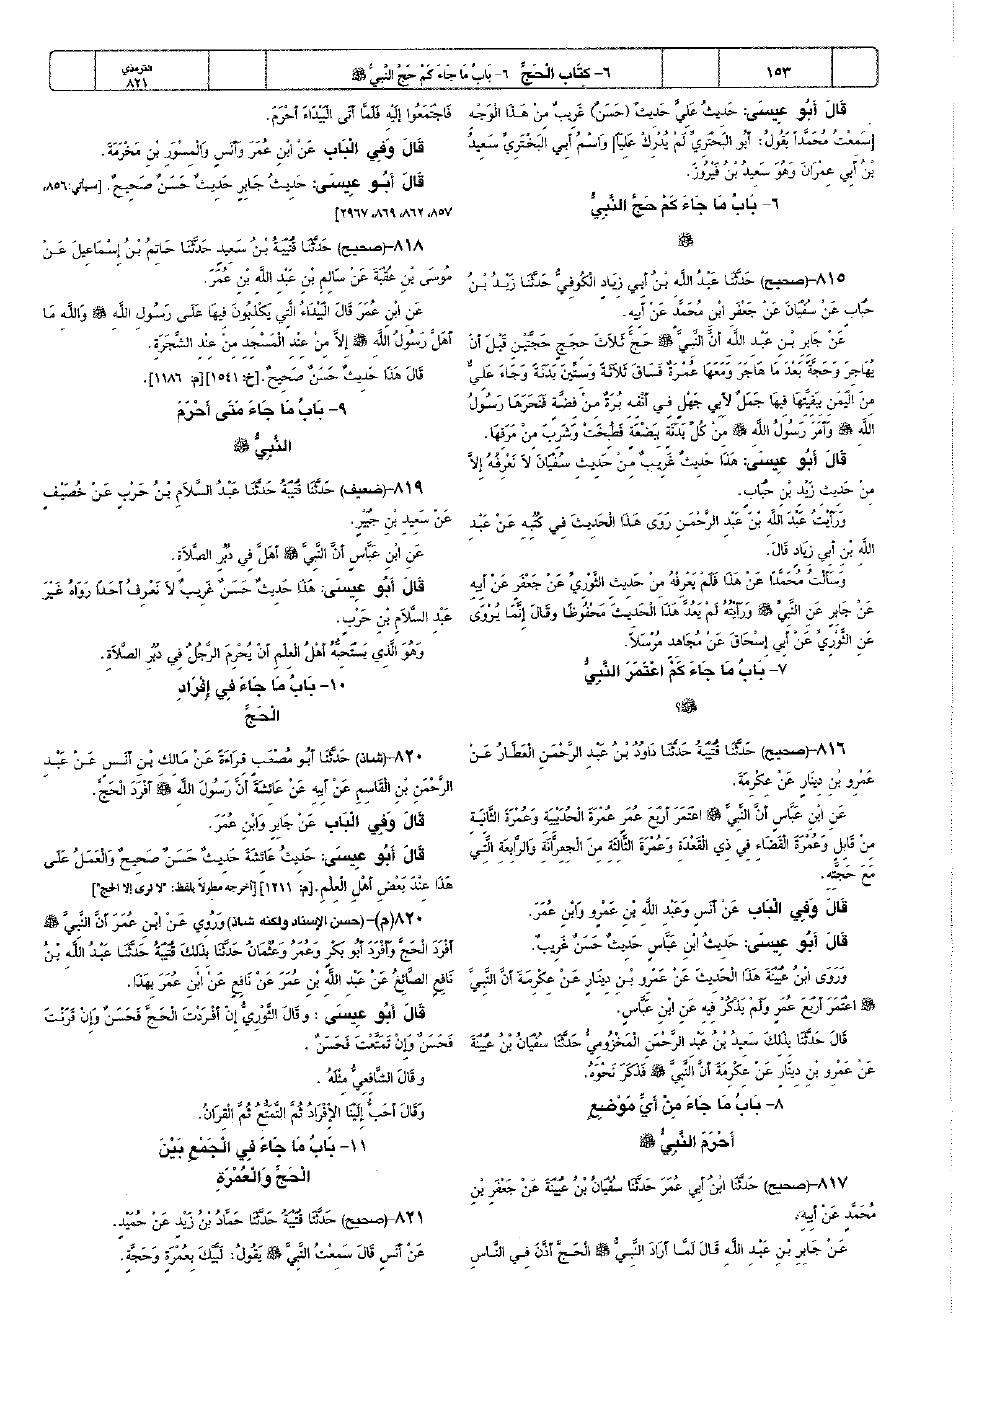 ١٥٣
٦- كتَاب الْحَجِّ ٦- بَابُ مَا جَاءَ كَمْ حَجَّ النَّبِيُّ ﷺ
الترمذي
٨٢١
قَالَ أَبُو عِيسَى: حَدِيثُ عَلِيٍّ حَدِيثٌ (حَسَنٌ) غَرِيبٌ مِنْ هَذَا الْوَجْهِ
[سَمِعْتُ مُحَمَّداً يَقُولُ: أَبُو الْبَخْتَرِيِّ لَمْ يُدْرِكْ عَلِيّاً] وَاسْمُ أَبِي الْبَخْتَرِيِّ سَعِيدُ
بْنُ أَبِي عِمْرَانَ وَهُوَ سَعِيدُ بْنُ فَيْرُوزَ.
٦- بَابُ مَا جَاءَ كَمْ حَجَّ النَّبِيُّ
ﷺ
٨١٥-(صحيح) حَدَّثَنَا عَبْدُ اللَّه بْنُ أَبِي زِيَادٍ الْكُوفِيُّ حَدَّثَنَا زَيْدُ بْنُ
حُبَابٍ عَنْ سُفْيَانَ عَنْ جَعْفَرِ ابْنِ مُحَمَّدٍ عَنْ أَبِيهِ.
عَنْ جَابِرِ بْنِ عَبْدِ اللَّه أَنَّ النَّبِيَّ ﷺ حَجَّ ثَلَاثَ حِجَجٍ حَجَّتَيْنِ قَبْلَ أَنْ
يُهَاجِرَ وَحَجَّةً بَعْدَ مَا هَاجَرَ وَمَعَهَا عُمْرَةٌ فَسَاقَ ثَلَاثَةً وَسِتِّينَ بَدَنَةً وَجَاءَ عَلِيٌّ
مِنَ الْيَمَنِ بِبَقِيَّتِهَا فِيهَا جَمَلٌ لأَبِي جَهْلٍ فِي أَنْفِهِ بُرَةٌ مِنْ فِضَّةٍ فَنَحَرَهَا رَسُولُ
اللَّه ﷺ وَأَمَرَ رَسُولُ اللَّه ﷺ مِنْ كُلِّ بَدَنَةٍ بِبَضْعَةٍ فَطُبِخَتْ وَشَرِبَ مِنْ مَرَقِهَا.
قَالَ أَبُو عِيسَى: هَذَا حَدِيثٌ غَرِيبٌ مِنْ حَدِيثِ سُفْيَانَ لاَ نَعْرِفُهُ إِلاَّ
مِنْ حَدِيثِ زَيْدِ بْنِ حُبَابٍ.
وَرَأَيْتُ عَبْدَ اللَّه بْنَ عَبْدِ الرَّحْمَنِ رَوَى هَذَا الْحَدِيثَ فِي كُتُبِهِ عَنْ عَبْدِ
اللَّه بْنِ أَبِي زِيَادٍ قَالَ.
وَسَأَلْتُ مُحَمَّدًا عَنْ هَذَا فَلَمْ يَعْرِفْهُ مِنْ حَدِيثِ الثَّوْرِيِّ عَنْ جَعْفَرٍ عَنْ أَبِيهِ
عَنْ جَابِرٍ عَنِ النَّبِيِّ ﷺ وَرَأَيْتُهُ لَمْ يَعُدَّ هَذَا الْحَدِيثَ مَحْفُوظًا وقَالَ إِنَّمَا يُرْوَى
عَنِ الثَّوْرِيِّ عَنْ أَبِي إِسْحَاقَ عَنْ مُجَاهِدٍ مُرْسَلاً.
٧- بَابُ مَا جَاءَ كَمْ اعْتَمَرَ النَّبِيُّ
ﷺ؟
٨١٦-(صحيح) حَدَّثَنَا قُتَيْبَةُ حَدَّثَنَا دَاوُدُ بْنُ عَبْدِ الرَّحْمَنِ الْعَطَّارُ عَنْ
عَمْرِو بْنِ دِينَارٍ عَنْ عِكْرِمَةَ.
عَنِ ابْنِ عَبَّاسٍ أَنَّ النَّبِيَّ ﷺ اعْتَمَرَ أَرْبَعَ عُمَرٍ عُمْرَةَ الْحُدَيْبِيَةِ وَعُمْرَةَ الثَّانِيَةِ
مِنْ قَابِلٍ وَعُمْرَةَ الْقَضَاءِ فِي ذِي الْقَعْدَةِ وَعُمْرَةَ الثَّالِثَةِ مِنَ الْجِعِرَّانَةِ وَالرَّابِعَةِ الَّتِي
مَعَ حَجَّتِهِ.
قَالَ وَفِي الْبَاب عَنْ أَنَسٍ وَعَبْدِ اللَّه بْنِ عَمْرٍو وَابْنِ عُمَرَ.
قَالَ أَبُو عِيسَى: حَدِيثُ ابْنِ عَبَّاسٍ حَدِيثٌ حَسَنٌ غَرِيبٌ.
وَرَوَى ابْنُ عُيَيْنَةَ هَذَا الْحَدِيثَ عَنْ عَمْرِو بْنِ دِينَارٍ عَنْ عِكْرِمَةَ أَنَّ النَّبِيَّ
ﷺ اعْتَمَرَ أَرْبَعَ عُمَرٍ وَلَمْ يَذْكُرْ فِيهِ عَنِ ابْنِ عَبَّاسٍ.
قَالَ حَدَّثَنَا بِذَلِكَ سَعِيدُ بْنُ عَبْدِ الرَّحْمَنِ الْمَخْزُومِيُّ حَدَّثَنَا سُفْيَانُ بْنُ عُيَيْنَةَ
عَنْ عَمْرِو بْنِ دِينَارٍ عَنْ عِكْرِمَةَ أَنَّ النَّبِيَّ ﷺ فَذَكَرَ نَحْوَهُ.
٨- بَابُ مَا جَاءَ مِنْ أَيِّ مَوْضِعٍ
أَحْرَمَ النَّبِيُّ ﷺ
٨١٧-(صحيح) حَدَّثَنَا ابْنُ أَبِي عُمَرَ حَدَّثَنَا سُفْيَانُ بْنُ عُيَيْنَةَ عَنْ جَعْفَرِ بْنِ
مُحَمَّدٍ عَنْ أَبِيهِ.
عَنْ جَابِرِ بْنِ عَبْدِ اللَّهِ قَالَ لَمَّا أَرَادَ النَّبِيُّ ﷺ الْحَجَّ أَذَّنَ فِي النَّاسِ
فَاجْتَمَعُوا إِلَيْهِ فَلَمَّا أَتَى الْبَيْدَاءَ أَحْرَمَ.
قَالَ وَفِي الْبَاب عَنْ ابْنِ عُمَرَ وَأَنَسٍ وَالْمِسْوَرِ بْنِ مَخْرَمَةَ.
قَالَ أَبُو عِيسَى: حَدِيثُ جَابِرٍ حَدِيثٌ حَسَنٌ صَحِيحٌ. [سيأتي: ٨٥٦،
٨٥٧، ٨٦٢، ٨٦٩، ٢٩٦٧]
٨١٨-(صحيح) حَدَّثَنَا قُتَيْبَةُ بْنُ سَعِيدٍ حَدَّثَنَا حَاتِمُ بْنُ إِسْمَاعِيلَ عَنْ
مُوسَى بْنِ عُقْبَةَ عَنْ سَالِمِ بْنِ عَبْدِ اللَّه بْنِ عُمَرَ.
عَنِ ابْنِ عُمَرَ قَالَ الْبَيْدَاءُ الَّتِي يَكْذِبُونَ فِيهَا عَلَى رَسُولِ اللَّهِ ﷺ وَاللَّه مَا
أَهَلَّ رَسُولُ اللَّه ﷺ إِلاَّ مِنْ عِنْدِ الْمَسْجِدِ مِنْ عِنْدِ الشَّجَرَةِ.
قَالَ هَذَا حَدِيثٌ حَسَنٌ صَحِيحٌ.[خ: ١٥٤١] [م: ١١٨٦].
٩- بَابُ مَا جَاءَ مَتَى أَحْرَمَ
النَّبِيُّ ﷺ
٨١٩-(ضعيف) حَدَّثَنَا قُتَيْبَةُ حَدَّثَنَا عَبْدُ السَّلاَمِ بْنُ حَرْبٍ عَنْ خُصَيْفٍ
عَنْ سَعِيدِ بْنِ جُبَيْرٍ.
عَنِ ابْنِ عَبَّاسٍ أَنَّ النَّبِيَّ ﷺ أَهَلَّ فِي دُبُرِ الصَّلاَةِ.
قَالَ أَبُو عِيسَى: هَذَا حَدِيثٌ حَسَنٌ غَرِيبٌ لاَ نَعْرِفُ أَحَداً رَوَاهُ غَيْرَ
عَبْدِ السَّلاَمِ بْنِ حَرْبٍ.
وَهُوَ الَّذِي يَسْتَحِبُّهُ أَهْلُ الْعِلْمِ أَنْ يُحْرِمَ الرَّجُلُ فِي دُبُرِ الصَّلاَةِ.
١٠- بَابُ مَا جَاءَ فِي إِفْرَادِ
الْحَجِّ
٨٢٠-(شاذ) حَدَّثَنَا أَبُو مُصْعَبٍ قِرَاءَةً عَنْ مَالِكِ بْنِ أَنَسٍ عَنْ عَبْدِ
الرَّحْمَنِ بْنِ الْقَاسِمِ عَنْ أَبِيهِ عَنْ عَائِشَةَ أَنَّ رَسُولَ اللَّه ﷺ أَفْرَدَ الْحَجَّ.
قَالَ وَفِي الْبَاب عَنْ جَابِرٍ وَابْنِ عُمَرَ.
قَالَ أَبُو عِيسَى: حَدِيثُ عَائِشَةَ حَدِيثٌ حَسَنٌ صَحِيحٌ وَالْعَمَلُ عَلَى
هَذَا عِنْدَ بَعْضِ أَهْلِ الْعِلْمِ.[م: ١٢١١] [أخرجه مطولاً بلفظ: "لا نرى إلا الحج"]
٨٢٠(م)-(حسن الإسناد ولكنه شاذ) وَرُوِي عَنْ ابْنِ عُمَرَ أَنَّ النَّبِيَّ ﷺ
أَفْرَدَ الْحَجَّ وَأَفْرَدَ أَبُو بَكْرٍ وَعُمَرُ وَعُثْمَانُ حَدَّثَنَا بِذَلِكَ قُتَيْبَةُ حَدَّثَنَا عَبْدُ اللَّه بْنُ
نَافِعٍ الصَّائِغُ عَنْ عَبْدِ اللَّه بْنِ عُمَرَ عَنْ نَافِعٍ عَنْ ابْنِ عُمَرَ بِهَذَا.
قَالَ أَبُو عِيسَى : وقَالَ الثَّوْرِيُّ إِنْ أَفْرَدْتَ الْحَجَّ فَحَسَنٌ وَإِنْ قَرَنْتَ
فَحَسَنٌ وَإِنْ تَمَتَّعْتَ فَحَسَنٌ .
وقَالَ الشَّافِعِيُّ مِثْلَهُ .
وَقَالَ أَحَبُّ إِلَيْنَا الإِفْرَادُ ثُمَّ التَّمَتُّعُ ثُمَّ الْقِرَانُ.
١١- بَابُ مَا جَاءَ فِي الْجَمْعِ بَيْنَ
الْحَجِّ وَالْعُمْرَةِ
٨٢١-(صحيح) حَدَّثَنَا قُتَيْبَةُ حَدَّثَنَا حَمَّادُ بْنُ زَيْدٍ عَنْ حُمَيْدٍ.
عَنْ أَنَسٍ قَالَ سَمِعْتُ النَّبِيَّ ﷺ يَقُولُ: لَبَّيْكَ بِعُمْرَةٍ وَحَجَّةٍ.